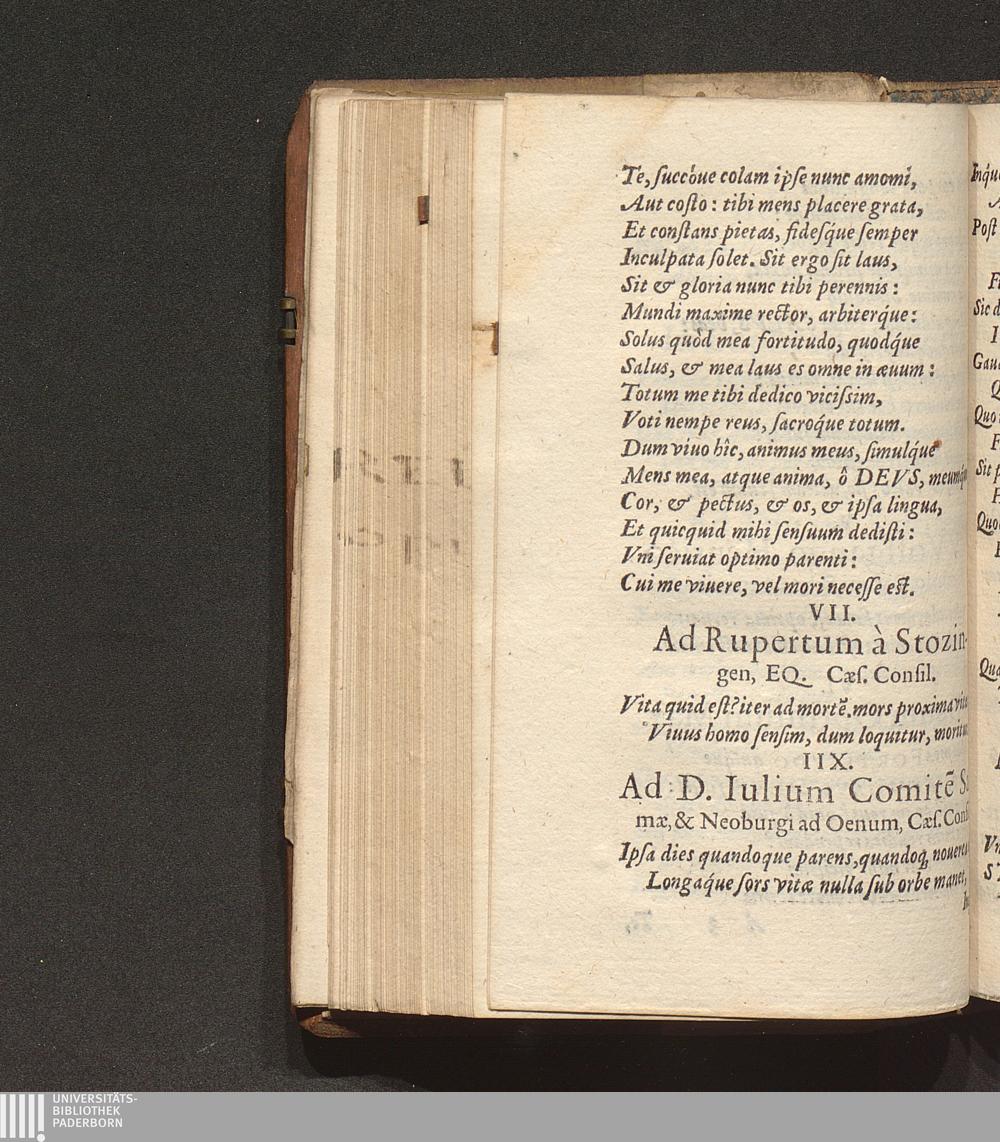 Te, ſuccóue colam ipſe nunc amomi,
Aut coſto: tibi mens placere grata,
Et conſtans pietas, fideſq́ue ſemper
Inculpata ſolet. Sit ergo ſit laus,
Sit & gloria nunc tibi perennis:
Mundi maxime rector, arbiterq́ue:
Solus quòd mea fortitudo, quodq́ue
Salus, & mea laus es omne in æuum:
Totum me tibi dedico viciſsim,
Voti nempe reus, ſacroq́ue totum.
Dum viuo hîc, animus meus, ſimulq́ue
Mens mea, atque anima, ô DEVS, meumq́ue
Cor, & pectus, & os, & ipſa lingua,
Et quicquid mihi ſenſuum dediſti:
Vni ſeruiat optimo parenti:
Cui me viuere, vel mori neceſſe eſt.
VII.
Ad Rupertum à Stozin-
gen, EQ. Cæſ. Conſil.
Vita quid eſt? iter ad mortē. mors proxima vitæ
Viuus homo ſenſim, dum loquitur, moritur
IIX.
Ad D. Iulium Comitē
mæ, & Neoburgi ad Oenum, Cæſ. Conſ
Ipſa dies quandoque parens, quandoq; nouerca
Longaq́ue ſors vitæ nulla ſub orbe manet,
Poſt
Sic d
Gau
Quo
Sit p
Quo
Qua
UNIVERSITÄTS-
BIBLIOTHEK
PADERBORN